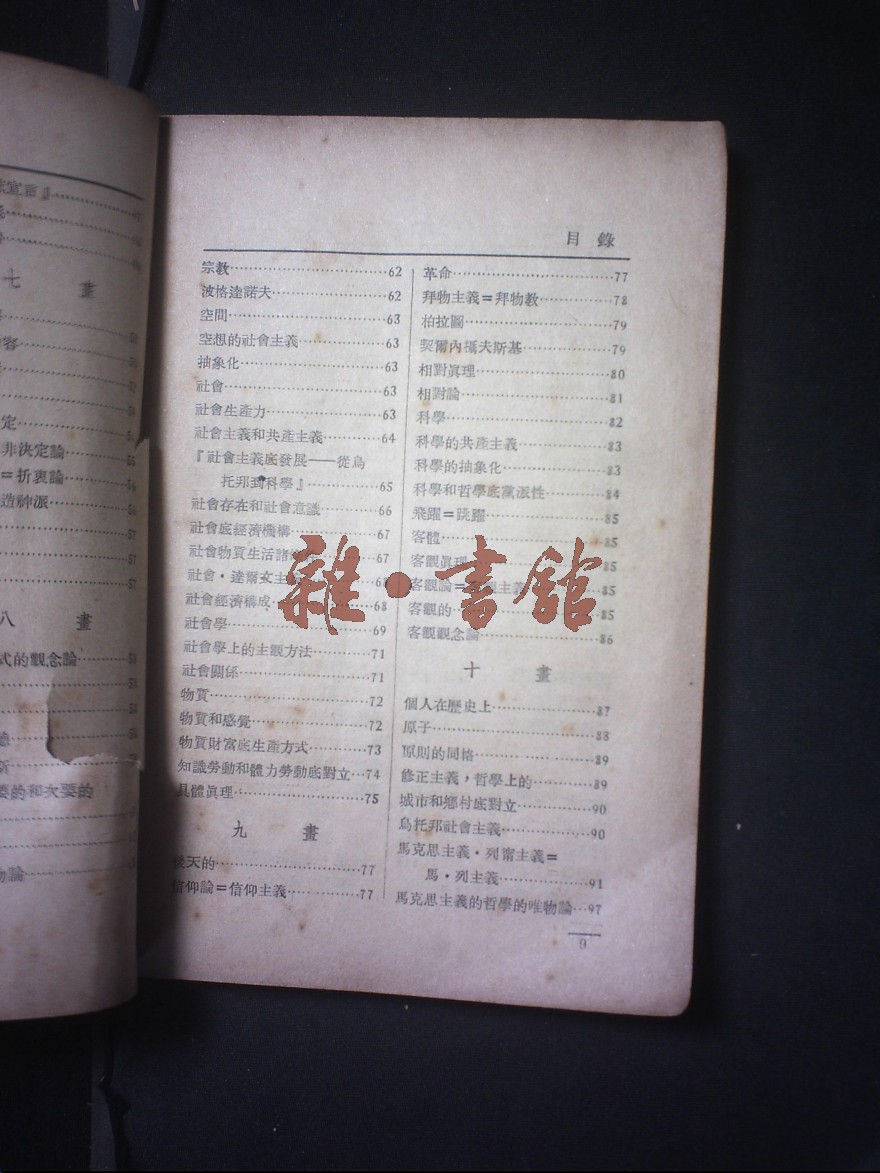 七 畫
非決定論
＝折衷論
造神派
八 畫
式的觀念論
目 錄
宗教…62
波格達諾夫…62
空間…63
空想的社會主義…63
抽象化…63
社會…63
社會生產力…63
社會主義和共產主義…64
『社會主義底發展——從烏
托邦到科學』…65
社會存在和社會意識…66
社會底經濟機構…67
社會物質生活諸…67
社會・達爾文主
社會經濟構成…68
社會學…69
社會學上的主觀方法…71
社會關係…71
物質…72
物質和感覺…72
物質財富底生產方式…73
知識勞動和體力勞動底對立…74
具體眞理…75
九 畫
後天的…77
信仰論＝信仰主義…77
革命…77
拜物主義＝拜物教…78
柏拉圖…79
契爾內攝夫斯基…79
相對眞理…80
相對論…81
科學…82
科學的共產主義…83
科學的抽象化…83
科學和哲學底黨派性…84
飛躍＝跳躍…85
客體…85
客觀眞理…85
客觀論＝客觀主義…85
客觀的…85
客觀觀念論…86
十 畫
個人在歷史上…87
原子…88
原則的同格…89
修正主義，哲學上的…89
城市和鄉村底對立…90
烏托邦社會主義…90
馬克思主義・列甯主義＝
馬・列主義…91
馬克思主義的哲學的唯物論…97
9
雜・書館